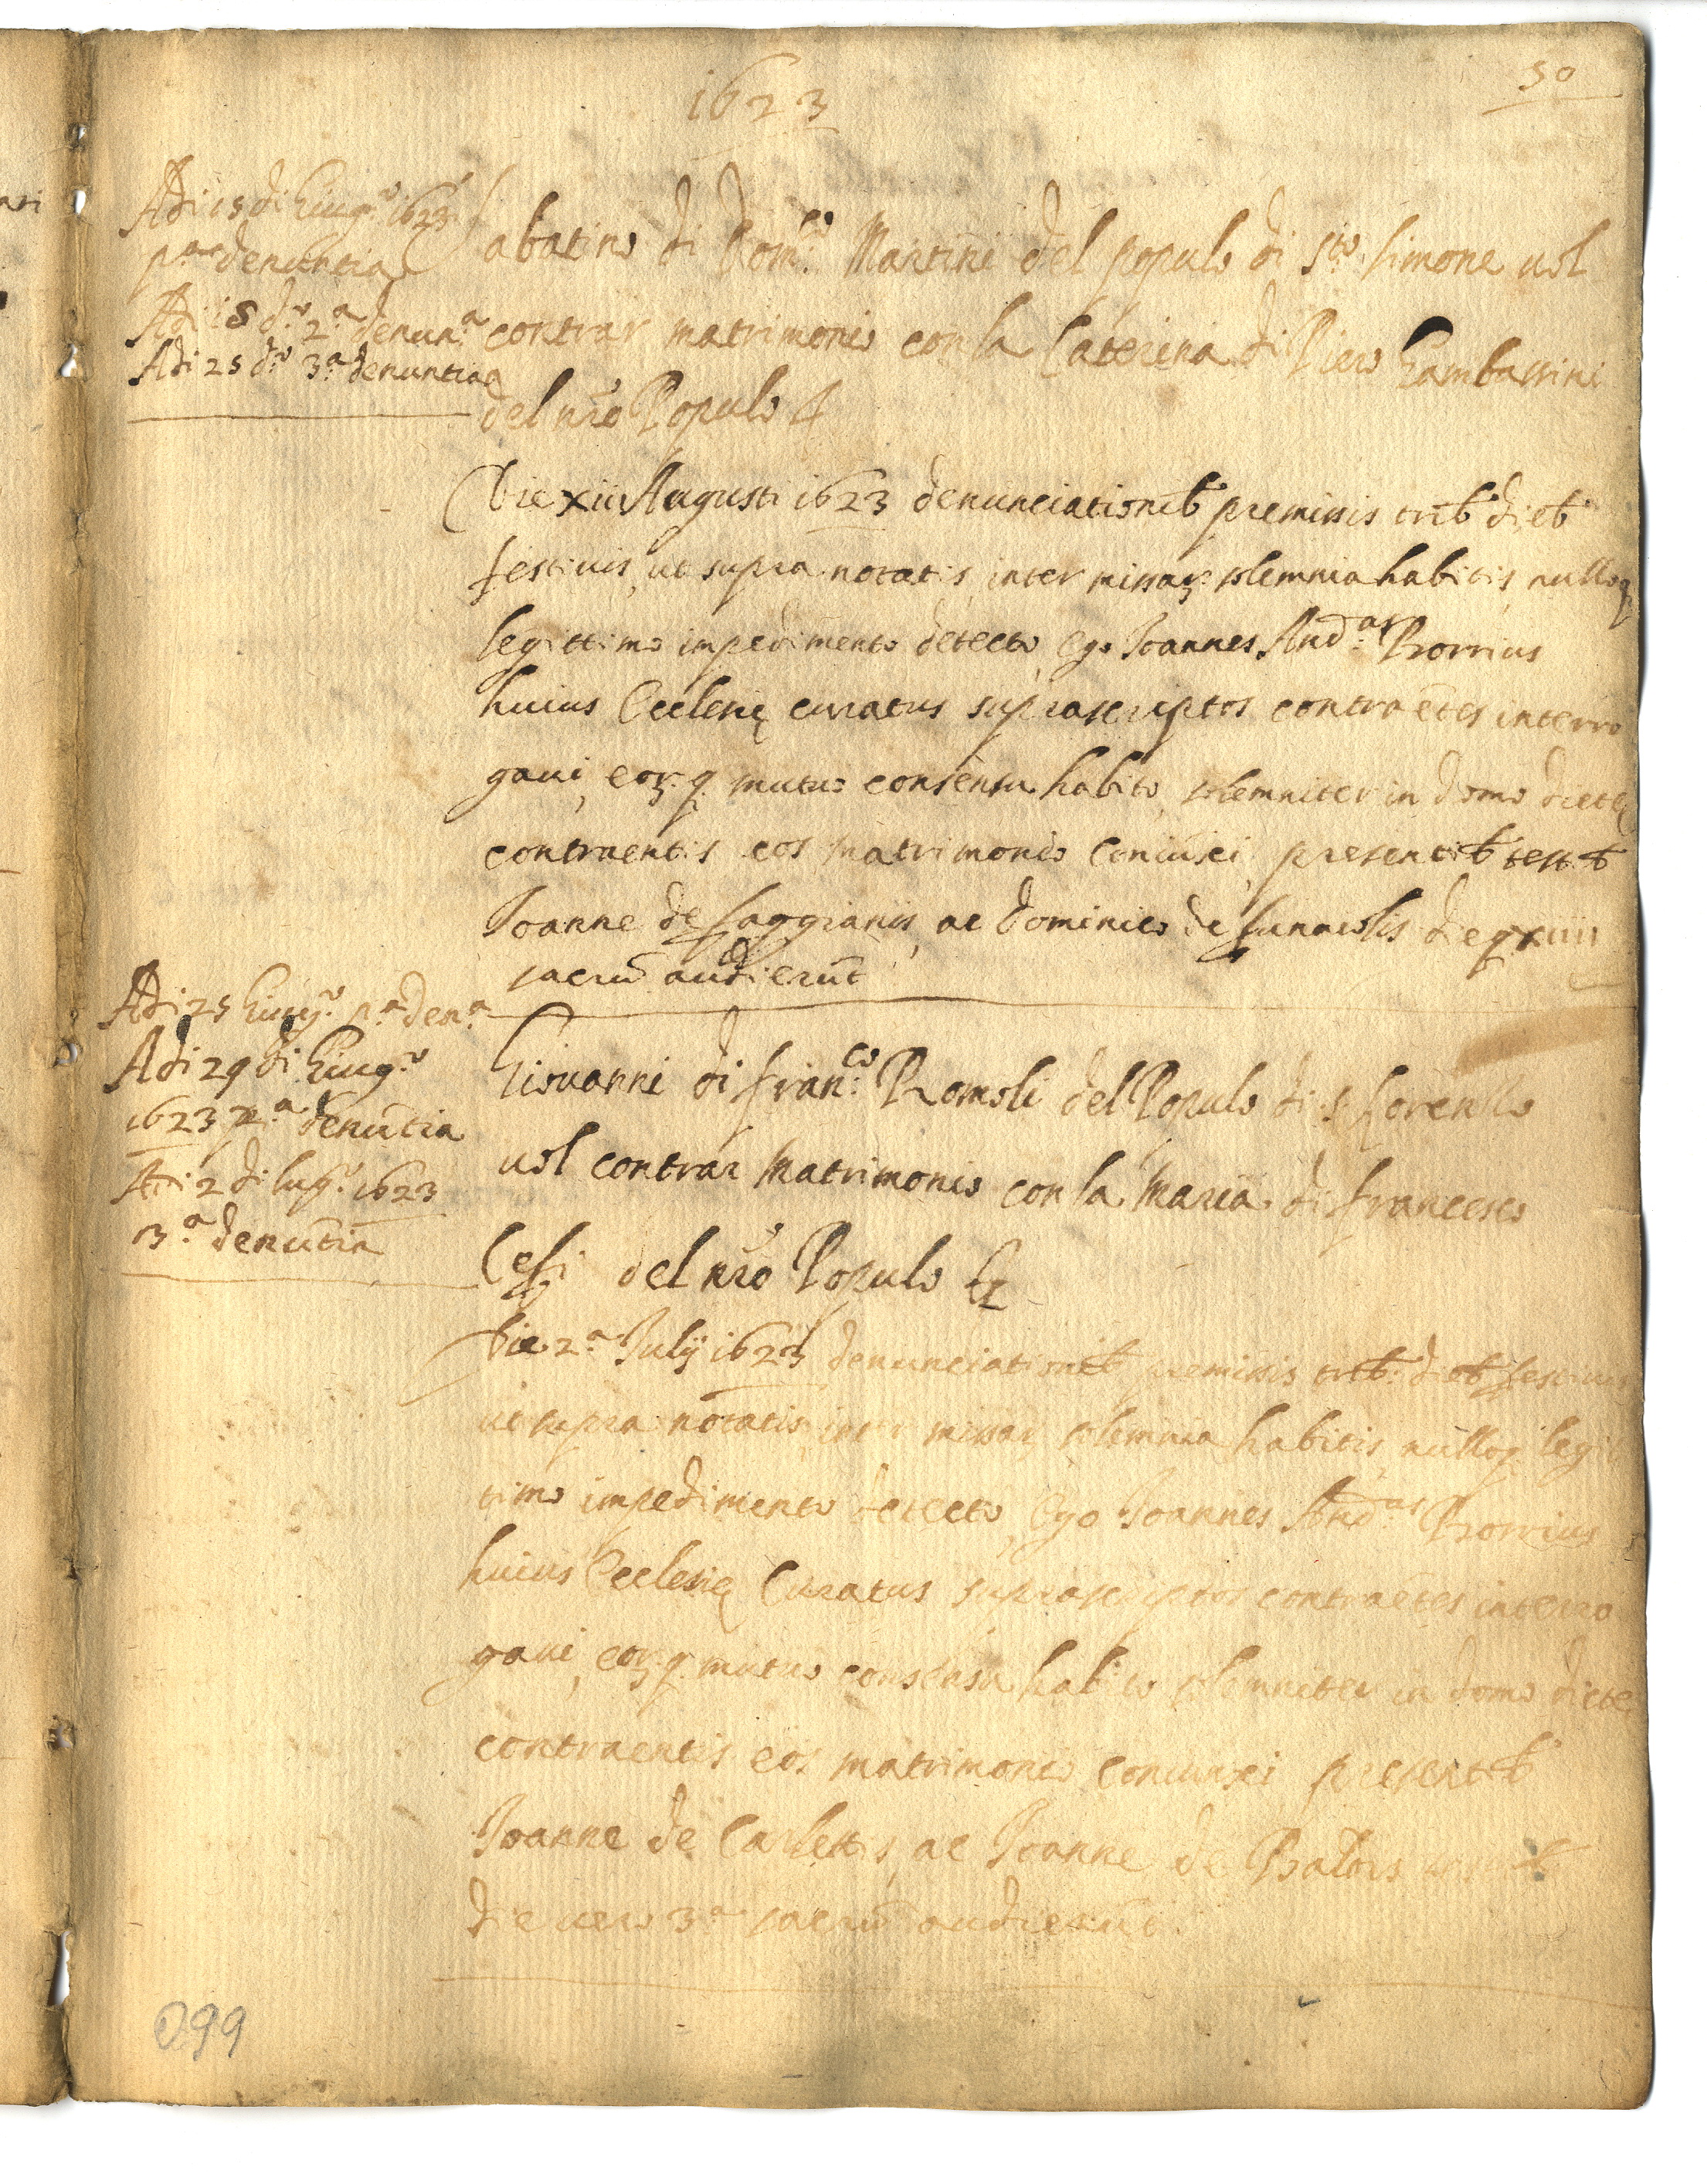 1623
50
Adi 15 di Giug.o 1623
p.a denuntia
Adi 18 d.o 2.a denun.a
Adi 25 d.o 3.a denuntia
Sabatino di Dom.co Martini del popolo di S.to Simone vol
contrar matrimonio con la Caterina di Piero Gambassini
del nro Popolo
Die xii Augusti 1623 denunciationib premissis trib dieb
festiuis, ut supra notatis, inter missar solemnia habitis, nulloq
legittimo impedimento detecto, ego Joannes And.as
huius Ecclesię curatus suprascriptos contraētes interro
gaui, eor q mutuo consensu habito, solemniter in domo dictę
contraentis eos matrimonio coniūxi, presentib testib
Joanne de Saggianis, ac Dominico de die q xiiii
sacrū audierūt
Adi 25 Giug.o p.a den.a
Adi 29 di Giug.o
1623 2.a denūtia
Adi 2 di lug.o 1623
3.a denūtia
Giouanni di fran.co Romoli del Popolo di S. Lorenzo
vol contrar Matrimonio con la Maria di francesco
Cesi del nro Popolo
Die 2.a Julij 1623 denunciationib premissis trib dieb festiuis
ut supra notatis, inter missar solemnia habitis, nulloq legit
timo impedimento detecto, Ego Joannes And.as
huius Ecclesię Curatus suprascriptos contraētes interro
gaui, eor q mutuo consensu habito solemniter in domo dicte
contraentis eos matrimonio coniunxi presentib
Joanne de Carlettis, ac Joanne de
die uero 3.a sacrū audierūt.
099